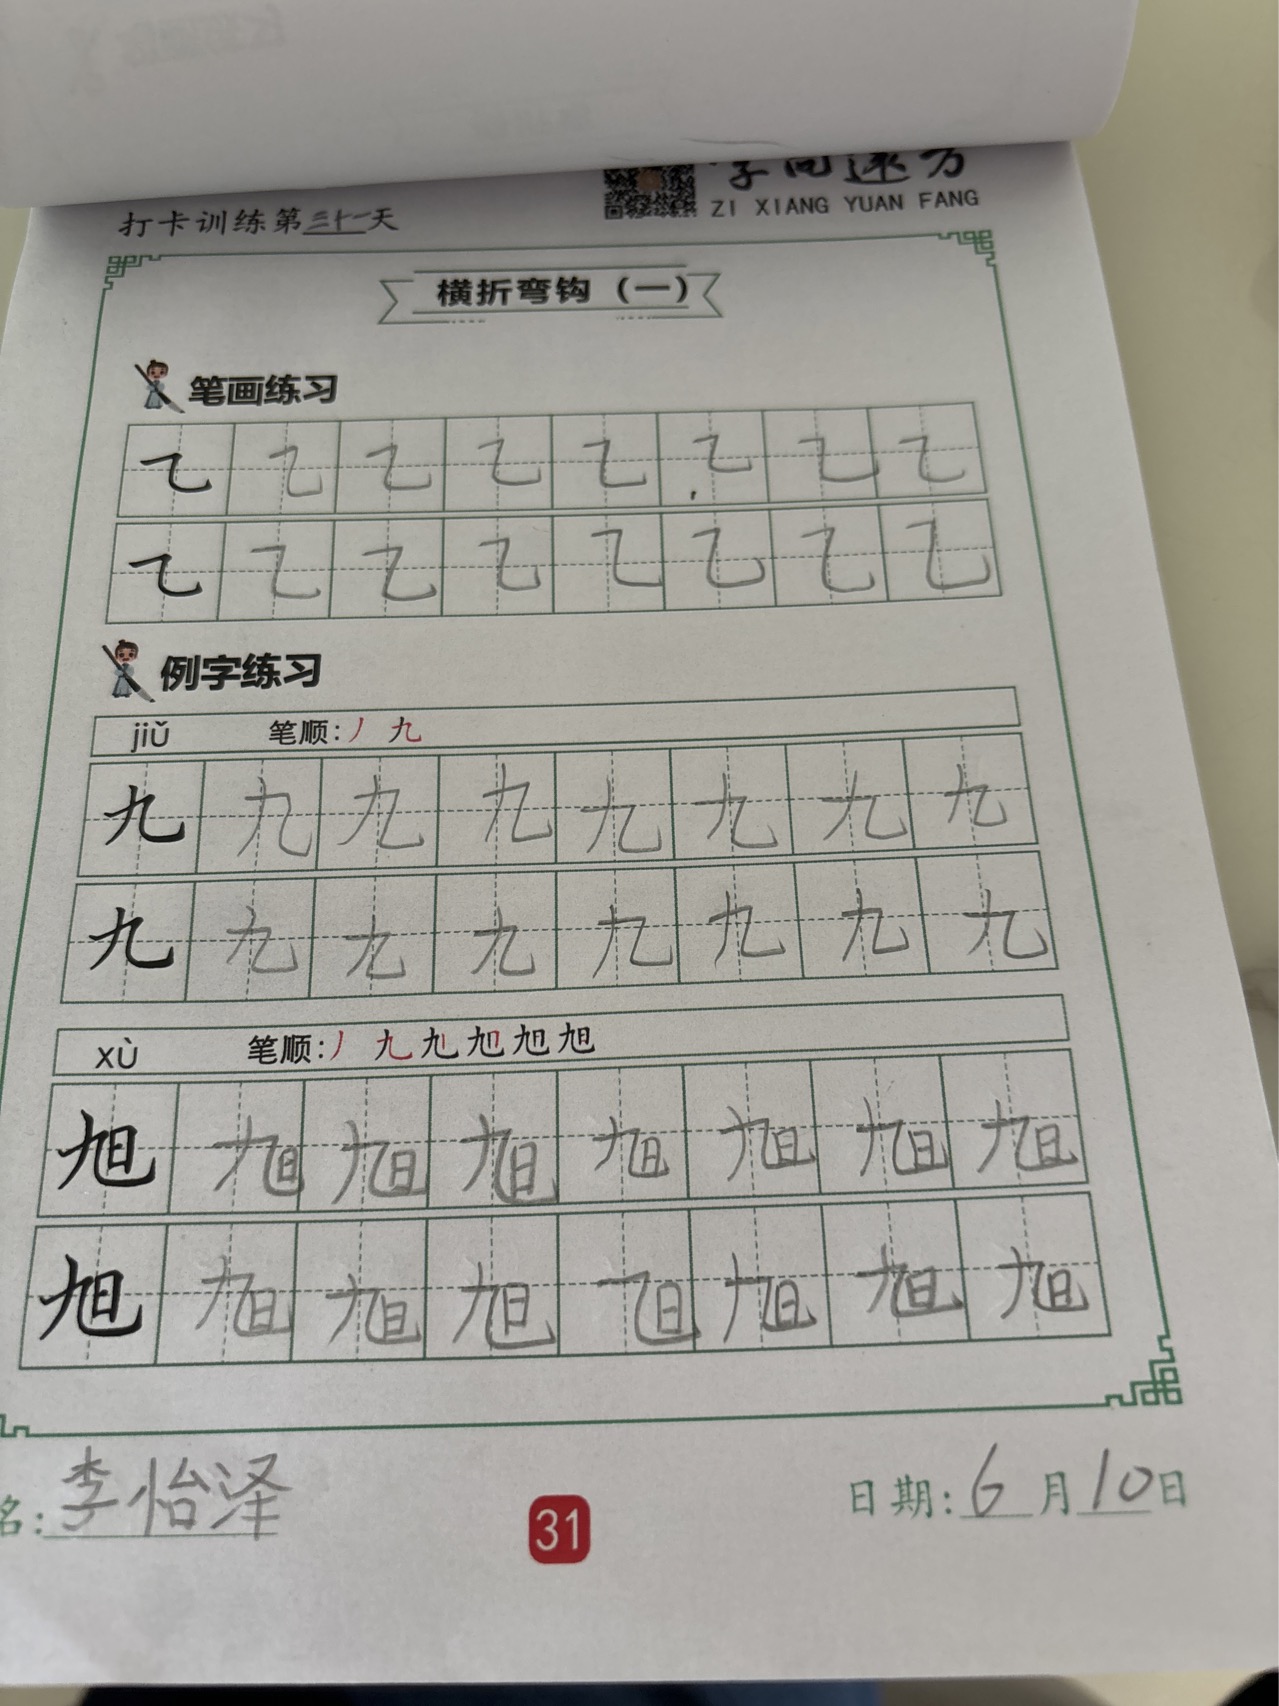 打卡训练第三十一天
ZI XIANG YUAN FANG
横折弯钩（一）
笔画练习
㇈ ㇈ ㇈ ㇈ ㇈ ㇈ ㇈ ㇈
㇈ ㇈ ㇈ ㇈ ㇈ ㇈ ㇈ ㇈
例字练习
jiǔ 笔顺：丿 九
九 九 九 九 九 九 九 九
九 九 九 九 九 九 九 九
xù 笔顺：丿 九 旭 旭 旭 旭
旭 旭 旭 旭 旭 旭 旭 旭
旭 旭 旭 旭 旭 旭 旭 旭
名：李怡泽
31
日期：6月10日